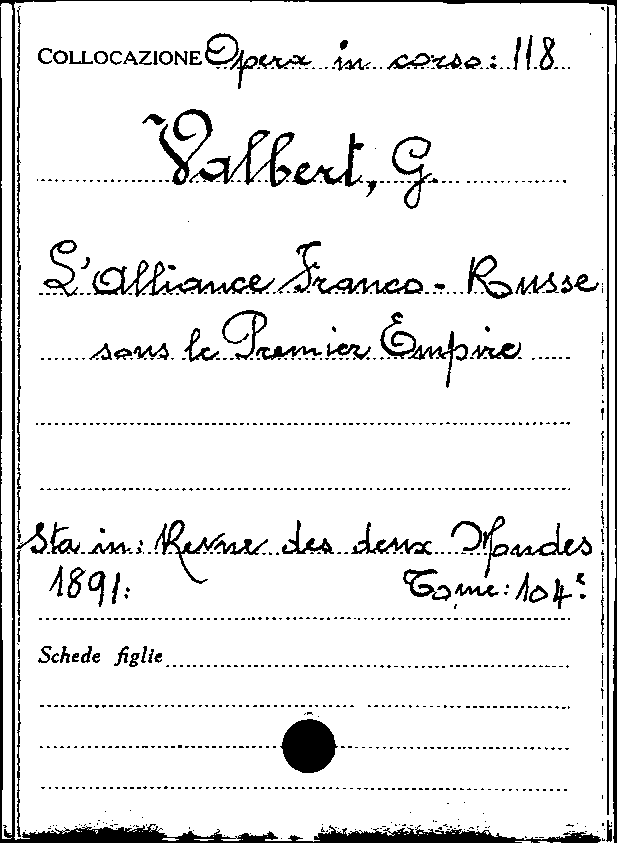 COLLOCAZIONE Opera in corso: 118
Valbert, G.
L'Alliance Franco-Russe
sous le Premier Empire
Sta in: Revue des deux Mondes
1891. Tome: 104e
Schede figlie